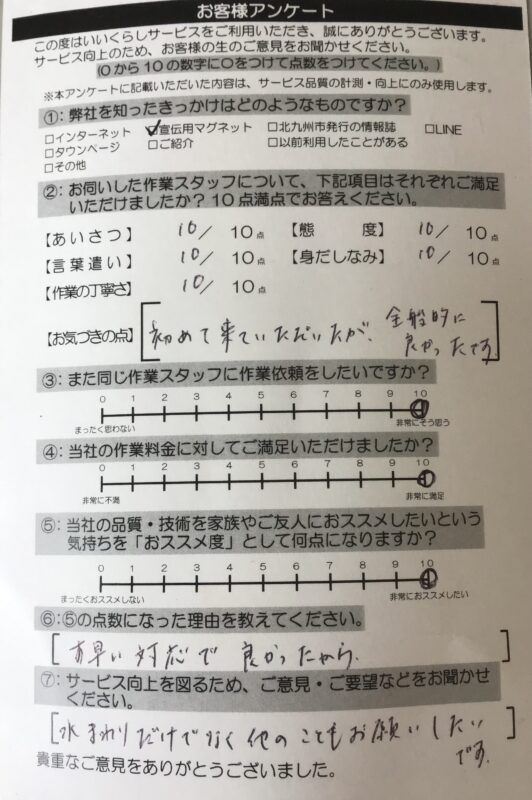 お客様アンケート
この度はいいくらしサービスをご利用いただき、誠にありがとうございます。
サービス向上のため、お客様の生のご意見をお聞かせください。
(0から10の数字に○をつけて点数をつけてください。)
※本アンケートに記載いただいた内容は、サービス品質の計測・向上にのみ使用します。
①：弊社を知ったきっかけはどのようなものですか？
□インターネット ☑宣伝用マグネット □北九州市発行の情報誌 □LINE
□タウンページ □ご紹介 □以前利用したことがある
□その他
②：お伺いした作業スタッフについて、下記項目はそれぞれご満足
いただけましたか？10点満点でお答えください。
【あいさつ】 10/10点 【態度】 10/10点
【言葉遣い】 10/10点 【身だしなみ】 10/10点
【作業の丁寧さ】 10/10点
【お気づきの点】[初めて来ていただいたが、全般的に
良かったです]
③：また同じ作業スタッフに作業依頼をしたいですか？
0 1 2 3 4 5 6 7 8 9 10
まったく思わない 非常にそう思う
④：当社の作業料金に対してご満足いただけましたか？
0 1 2 3 4 5 6 7 8 9 10
非常に不満 非常に満足
⑤：当社の品質・技術を家族やご友人におススメしたいという
気持ちを「おススメ度」として何点になりますか？
0 1 2 3 4 5 6 7 8 9 10
まったくおススメしない 非常におススメしたい
⑥：⑤の点数になった理由を教えてください。
[お早い対応で良かったから。]
⑦：サービス向上を図るため、ご意見・ご要望などをお聞かせ
ください。
[水まわりだけでなく他のこともお願いしたい
です。]
貴重なご意見をありがとうございました。